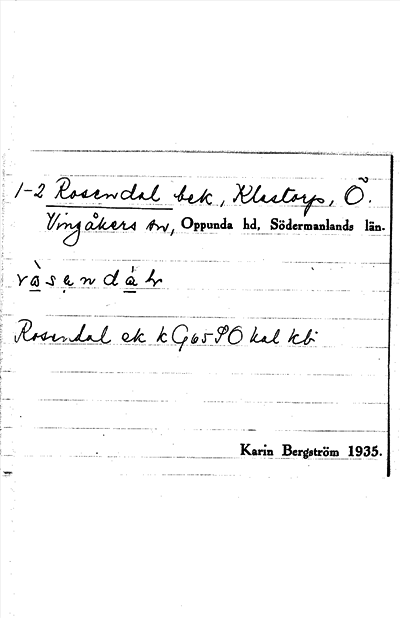 1-2 Rosendal bek, Klastorp, Ö.
Vingåkers sn, Oppunda hd, Södermanlands län.
Rosendal ek k G65 SO kal kb
Karin Bergström 1935.